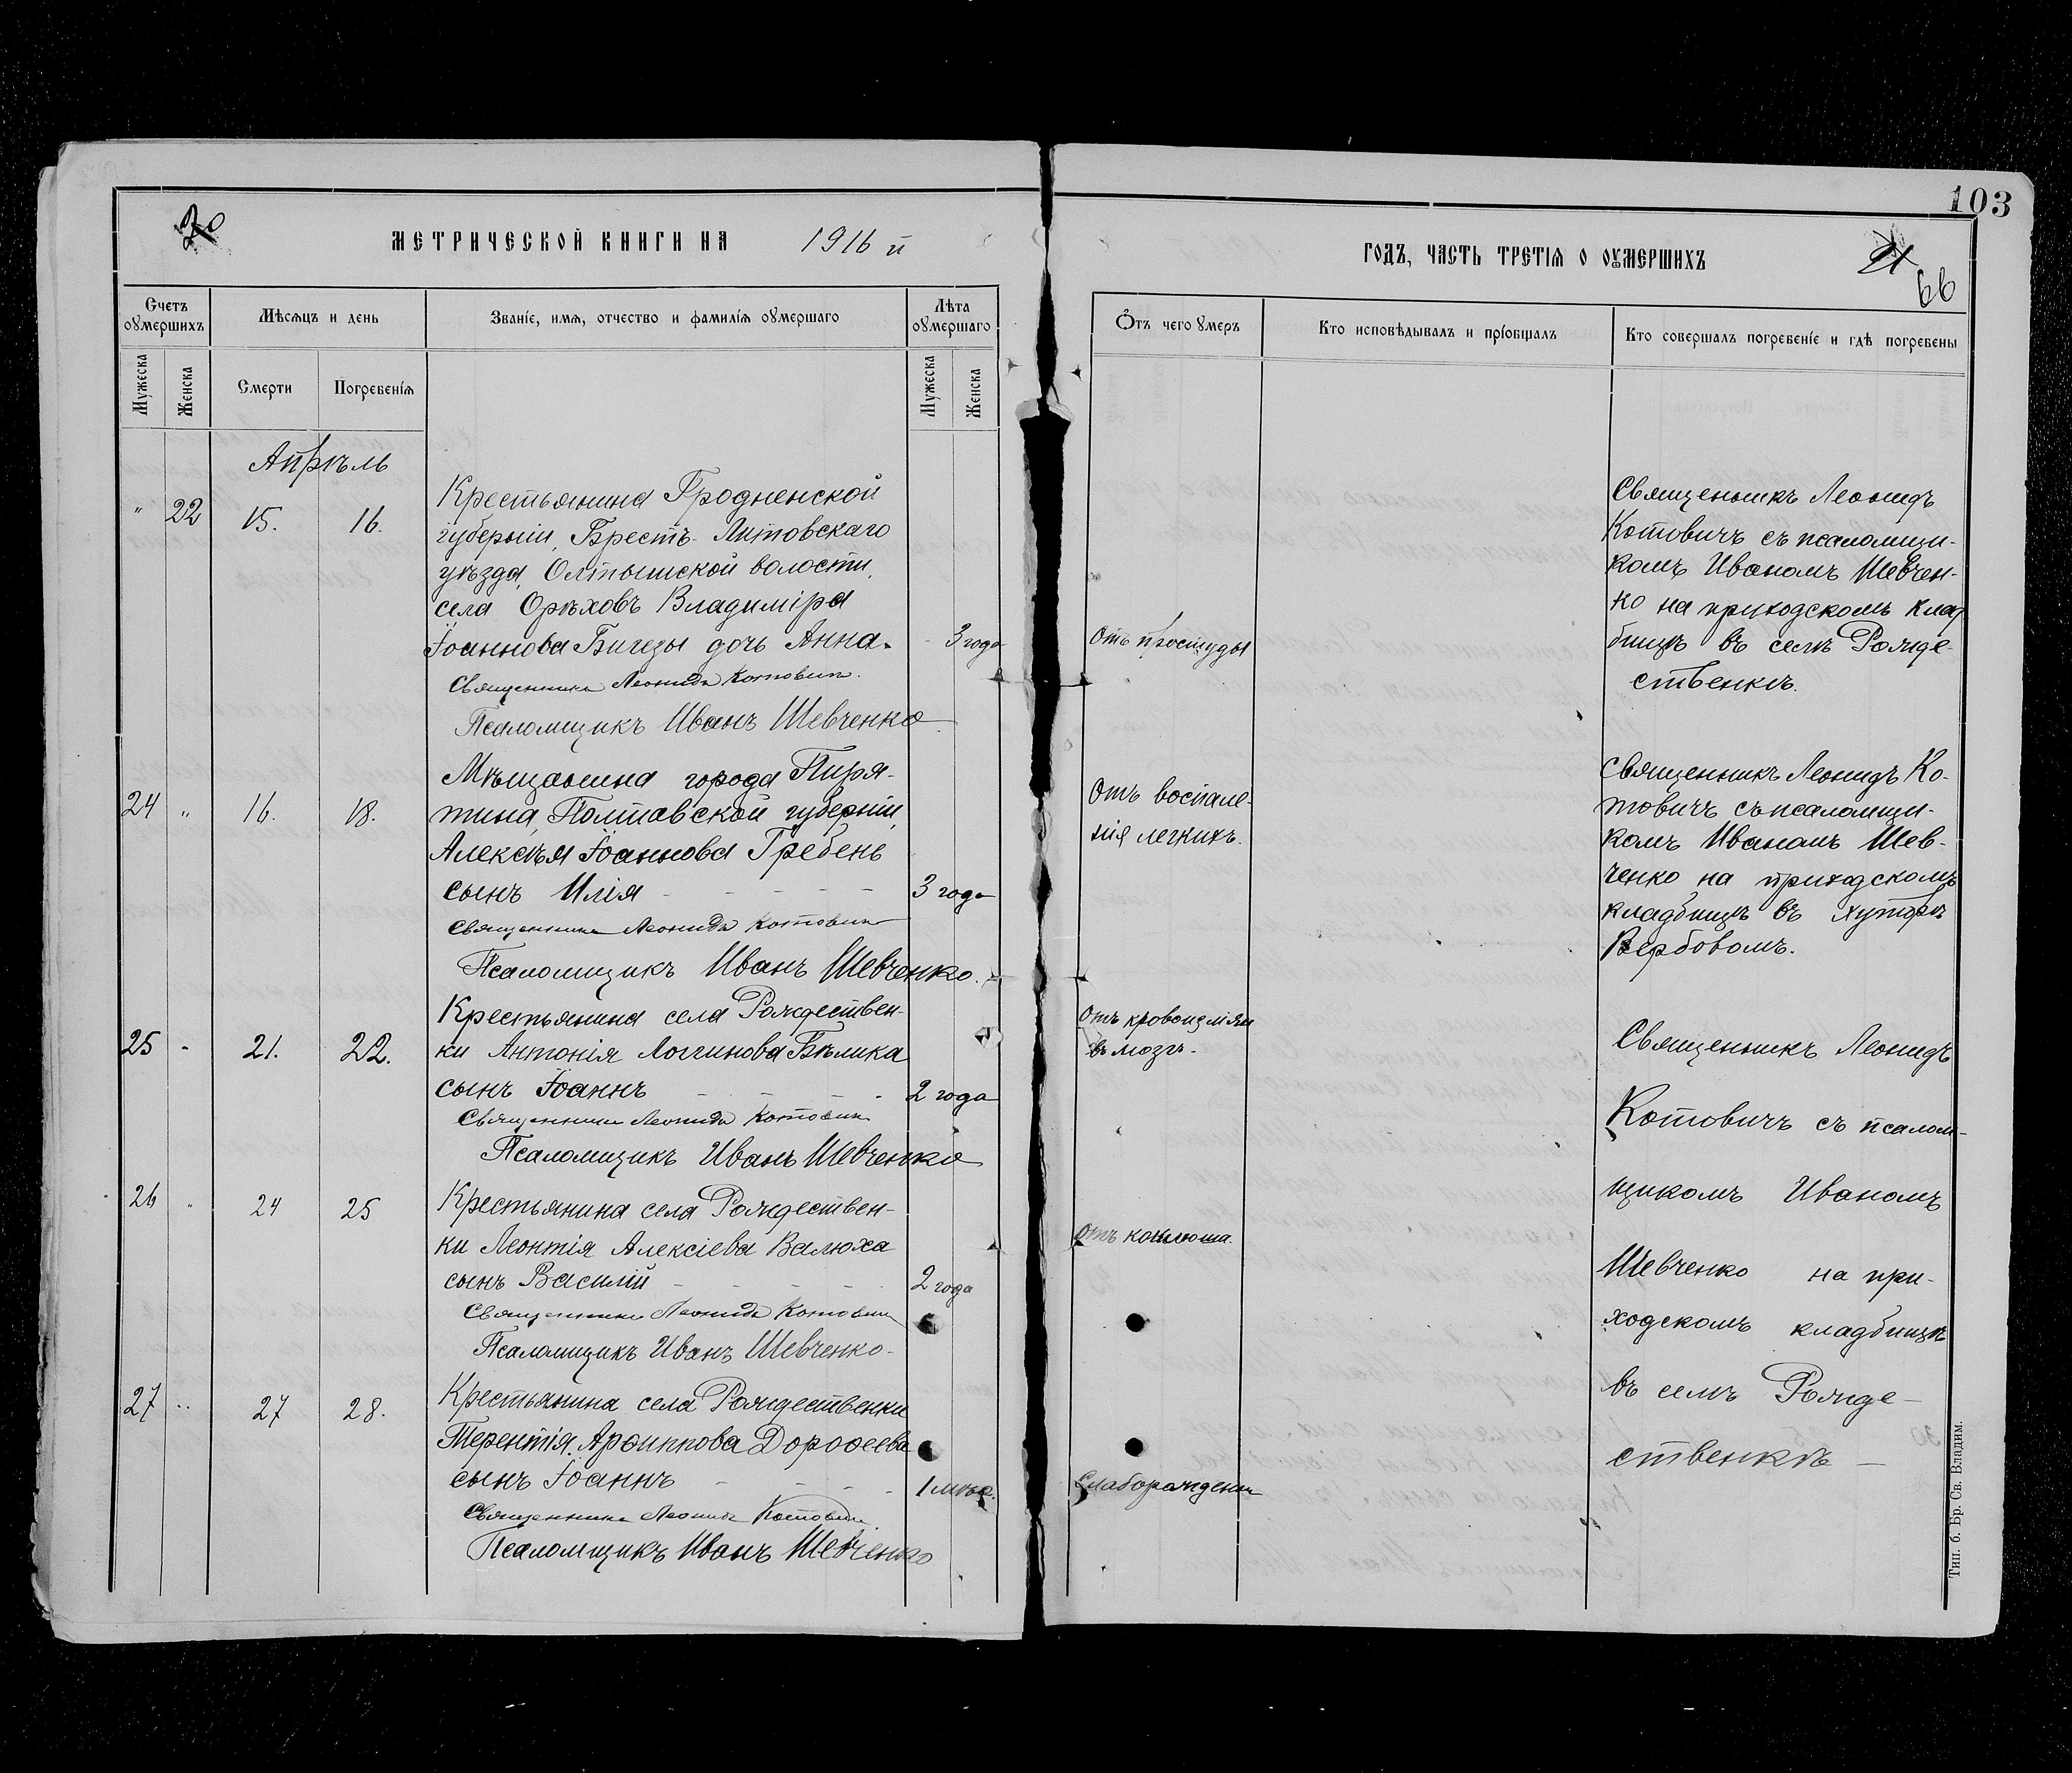 103
20
МЕТРИЧЕСКОЙ КНИГИ НА 1916 й
ГОДЪ, ЧАСТЬ ТРЕТІЯ О ОУМЕРШИХЪ
21
66
Счетъ оумершихъ
Мѣсяцъ и день
Званіе, имя, отчество и фамилія оумершаго
Лѣта оумершаго
Мужеска
Женска
Смерти
Погребенія
Мужеска
Женска
Отъ чего умеръ
Кто исповѣдывалъ и пріобщалъ
Кто совершалъ погребеніе и гдѣ погребены
Апрѣль
" 22 15. 16.
Крестьянина Гродненской
губерніи, Брестъ-Литовскаго
уѣзда, Олтышской волости,
села Орѣховъ Владиміра
Іоаннова Бигезы дочь Анна.
3 года
Священникъ Леонидъ Котовичъ.
Псаломщикъ Иванъ Шевченко
Отъ простуды
Священникъ Леонидъ
Котовичъ съ псаломщи-
комъ Иваномъ Шевчен-
ко на приходскомъ клад
бищѣ въ селѣ Рожде-
ственкѣ.
24 " 16. 18.
Мѣщанина города Пиря-
тина, Полтавской губерніи,
Алексѣя Іоаннова Гребень
сынъ Илія
3 года
Священникъ Леонидъ Котовичъ
Псаломщикъ Иванъ Шевченко.
Отъ воспале-
нія легкихъ.
Священникъ Леонидъ Ко-
товичъ съ псаломщи-
комъ Иваномъ Шев-
ченко на приходскомъ
кладбищѣ въ хуторѣ
Вербовомъ.
25 - 21. 22.
Крестьянина села Рождествен-
ки Антонія Логгинова Бѣлика
сынъ Іоаннъ
2 года
Священникъ Леонидъ Котовичъ
Псаломщикъ Иванъ Шевченко
Отъ кровоизліян
въ мозгъ.
26 " 24 25
Крестьянина села Рождествен-
ки Леонтія Алексіева Валюха
сынъ Василій
2 года
Священникъ Леонидъ Котовичъ
Псаломщикъ Иванъ Шевченко.
Отъ коклюша.
27 " 27 28.
Крестьянина села Рождественки
Терентія Архиппова Дорофеева
сынъ Іоаннъ
1 мѣс.
Священникъ Леонидъ Котовичъ.
Псаломщикъ Иванъ Шевченко
Слаборожденн
Священникъ Леонидъ
Котовичъ съ псалом-
щикомъ Иваномъ
Шевченко на при-
ходскомъ кладбищѣ
въ селѣ Рожде-
ственкѣ
Тип. б. Бр. Св. Владим.